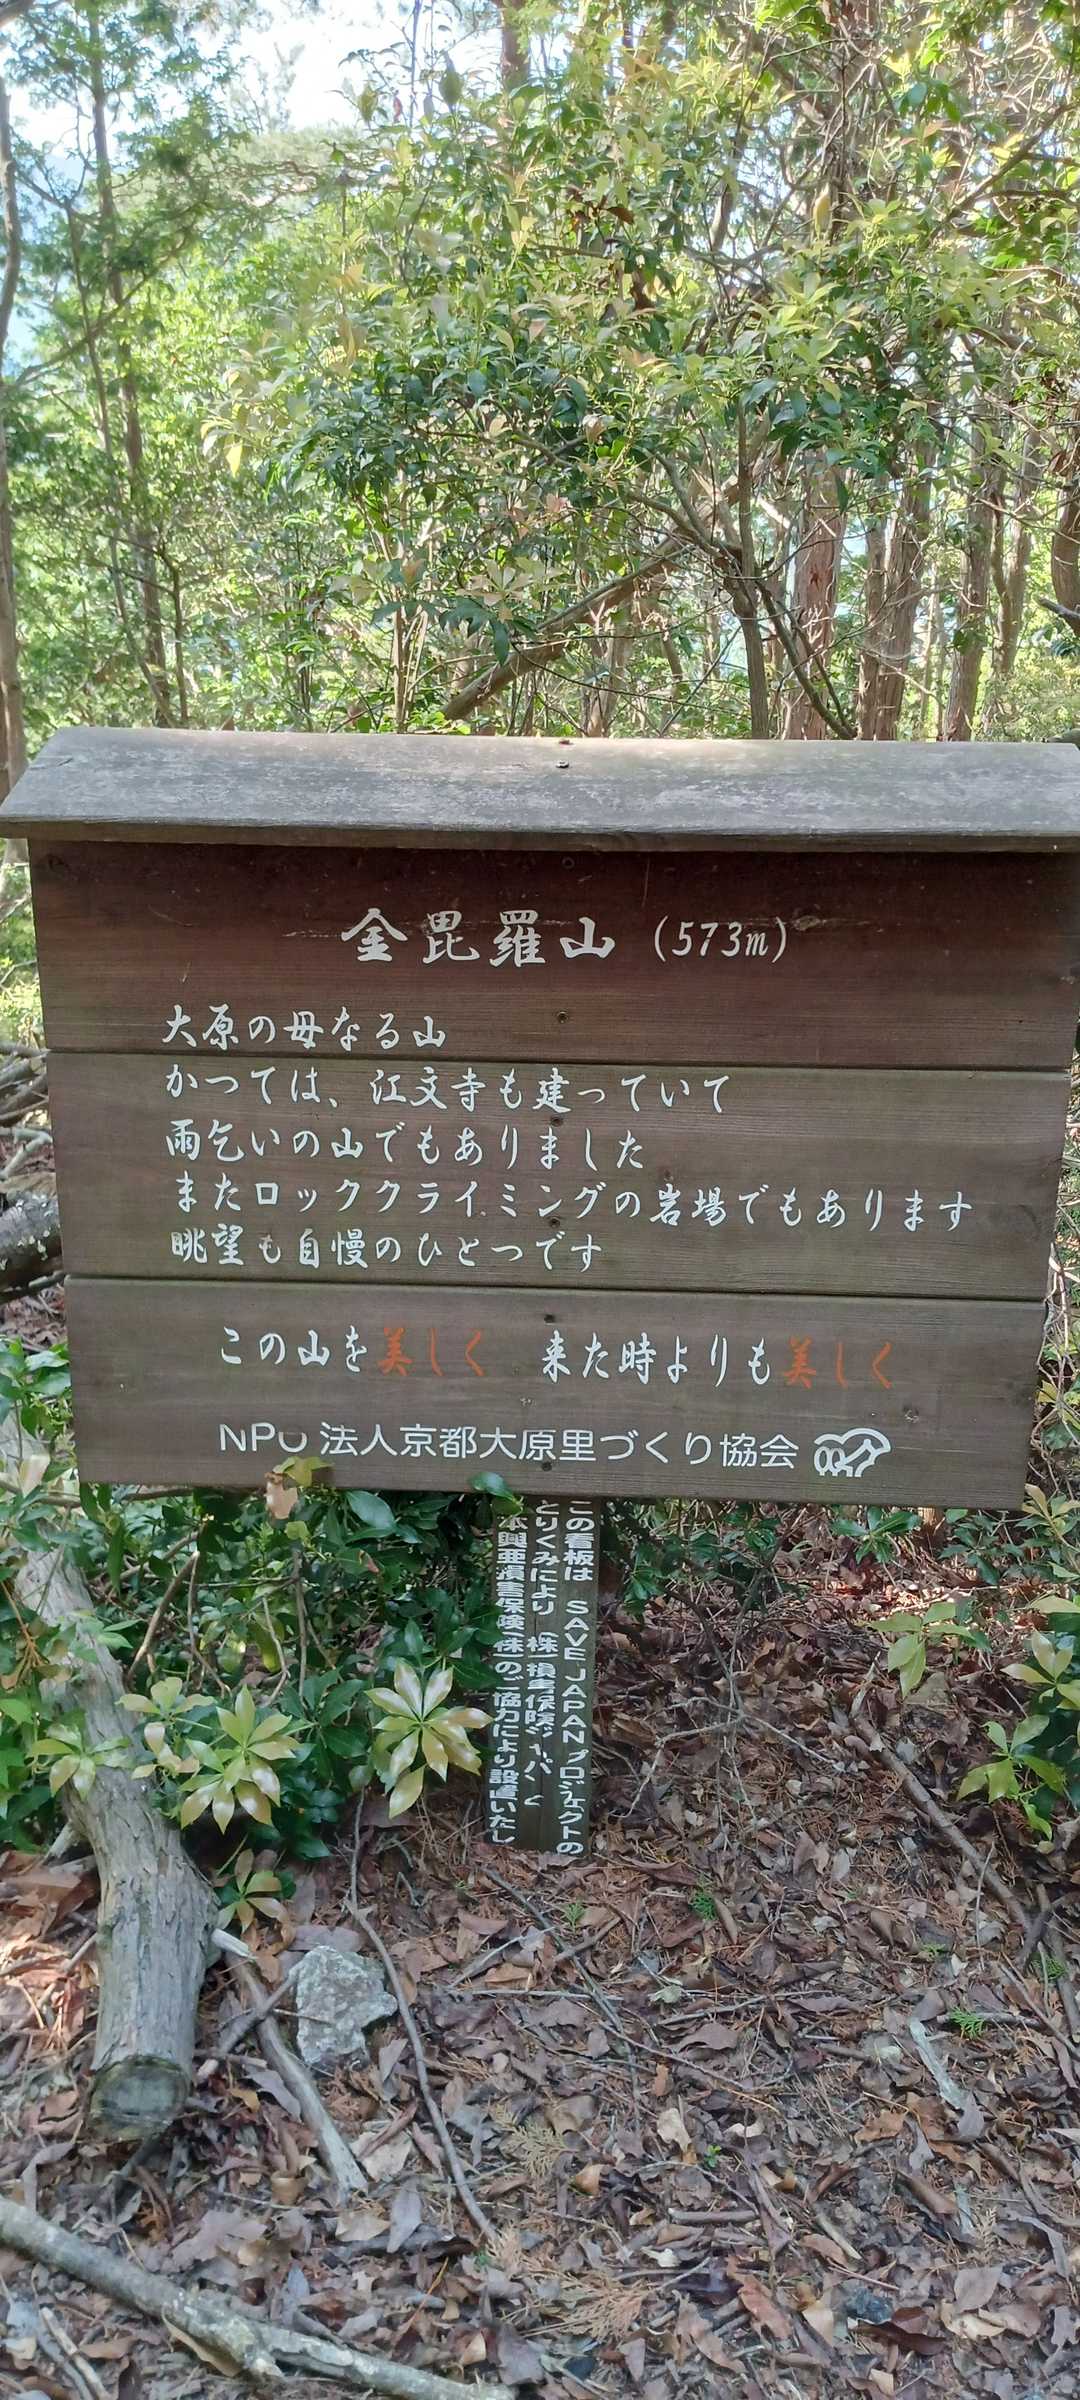 金毘羅山 (573m)
大原の母なる山
かつては、江文寺も建っていて
雨乞いの山でもありました
またロッククライミングの岩場でもあります
眺望も自慢のひとつです
この山を美しく 来た時よりも美しく
NPO 法人京都大原里づくり協会
この看板は SAVE JAPAN プロジェクトの
とりくみにより (株)損害保険ジャパン
本興亜損害保険(株)のご協力により設置いたし